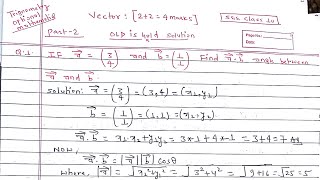 Trigonometry
optional
mathematics
Vector: [2+2=4marks]
see class 10
Part-2
OLD is gold solution
Q.1.
IF a⃗ = (3 4) and b⃗ = (1 1) Find a⃗.b⃗ angle between
a⃗ and b⃗.
solution: a⃗ = (3 4) = (3,4) = (x₁,y₁)
b⃗ = (1 1) = (1,1) = (x₂,y₂)
a⃗.b⃗ = x₁.x₂+y₁y₂ = 3×1+4×1 = 3+4=7
Now,
a⃗.b⃗ = |a⃗||b⃗| cosθ
where, |a⃗| = √x²+y² = √3²+4² = √9+16 = √25 = 5